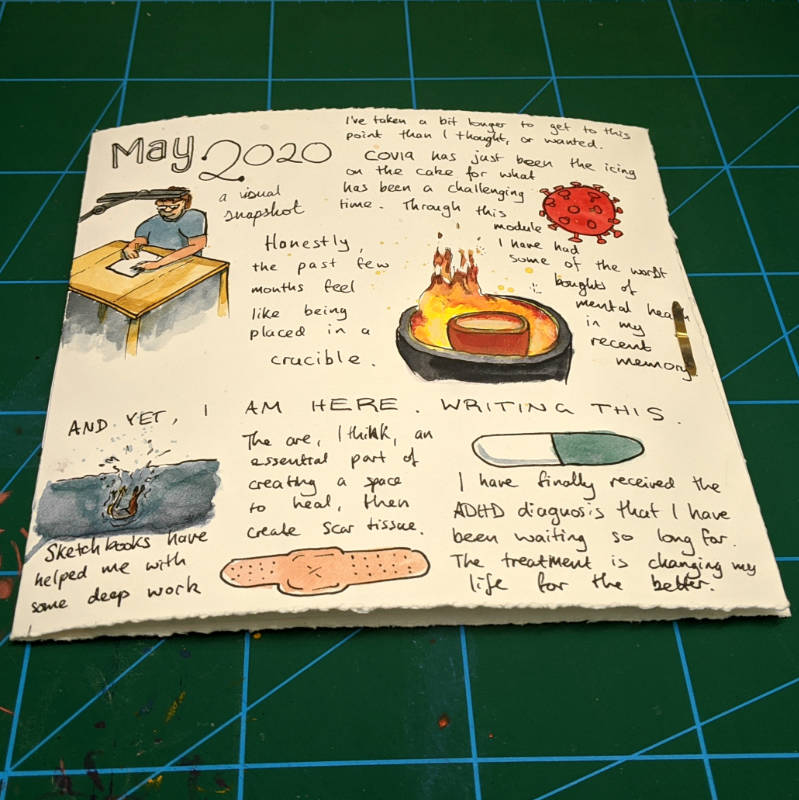 May 2020
a visual
snapshot
I've taken a bit longer to get to this
point than I thought, or wanted.
COVID has just been the icing
on the cake for what
has been a challenging
time. Through this
module
I have had
some of the worst
bought of
mental health
in my
recent
memory
Honestly,
the past few
months feel
like being
placed in a
crucible.
AND YET, I AM HERE. WRITING THIS.
Sketchbooks have
helped me with
some deep work
The are, I think, an
essential part of
creating a space
to heal, then
create scar tissue.
I have finally received the
ADHD diagnosis that I have
been waiting so long for.
The treatment is changing my
life for the better.